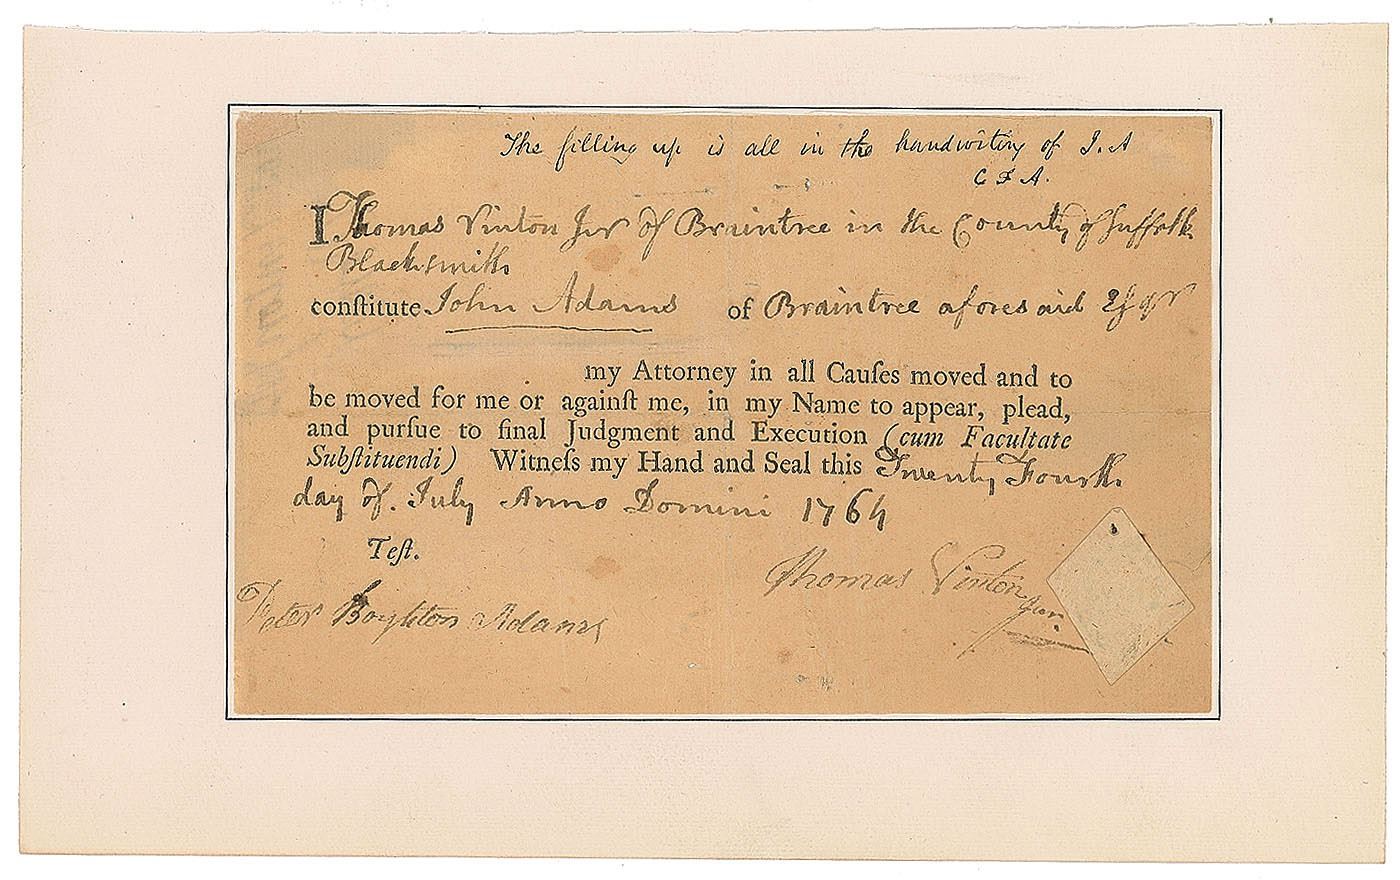 The filling up is all in the handwriting of J. A
C F A.
I Thomas Vinton Junr of Braintree in the County of Suffolk
Blacksmith
conſtitute John Adams of Braintree aforesaid Esqr
my Attorney in all Cauſes moved and to
be moved for me or againſt me, in my Name to appear, plead,
and purſue to final Judgment and Execution (cum Facultate
Subſtituendi) Witneſs my Hand and Seal this Twenty Fourth
day of. July Anno Domini 1764
Teſt.
Thomas Vinton
Junr
Peter Boylston Adams